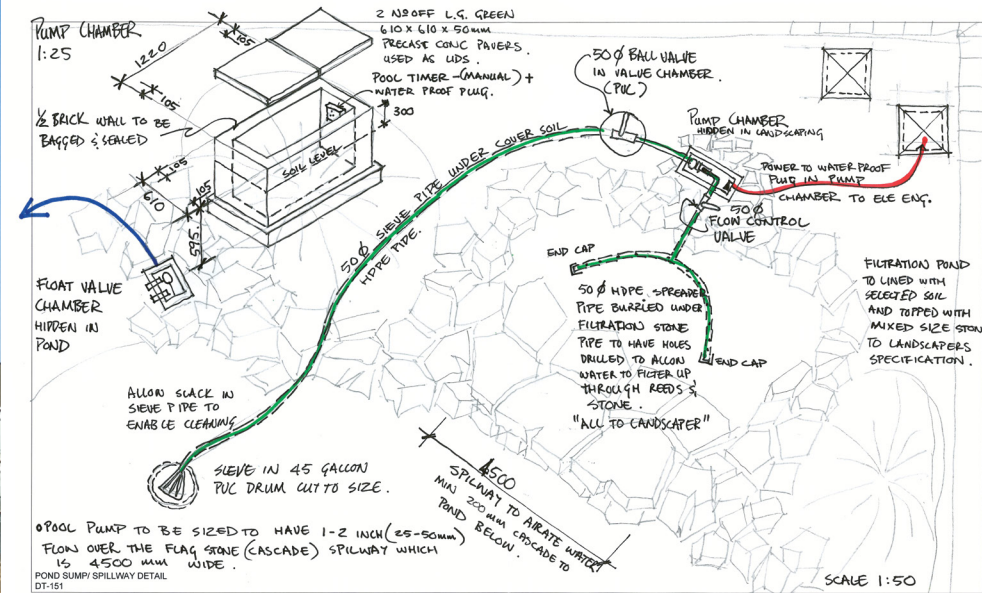 PUMP CHAMBER
1:25
1220
105
105
½ BRICK WALL TO BE
BAGGED & SEALED
2 NoOFF L.G. GREEN
610 x 610 x 50mm
PRECAST CONC PAVERS.
USED AS LIDS.
POOL TIMER-(MANUAL) +
WATER PROOF PLUG.
300
SOIL LEVEL
105
610
105
595.
50Ø BALL VALVE
IN VALVE CHAMBER.
(PVC)
PUMP CHAMBER
HIDDEN IN LANDSCAPING
POWER TO WATERPROOF
PLUG IN PUMP
CHAMBER TO ELE ENG.
50Ø
FLOW CONTROL
VALVE
50Ø SIEVE PIPE UNDER COVER SOIL
HDPE PIPE.
FLOAT VALVE
CHAMBER
HIDDEN IN
POND
END CAP
50Ø HDPE SPREADER
PIPE BURRIED UNDER
FILTRATION STONE
PIPE TO HAVE HOLES
DRILLED TO ALLOW
WATER TO FILTER UP
THROUGH REEDS &
STONE.
"ALL TO LANDSCAPER"
END CAP
FILTRATION POND
TO LINED WITH
SELECTED SOIL
AND TOPPED WITH
MIXED SIZE STON
TO LANDSCAPERS
SPECIFICATION.
ALLOW SLACK IN
SIEVE PIPE TO
ENABLE CLEANING
SIEVE IN 45 GALLON
PVC DRUM CUT TO SIZE.
4500
SPILWAY TO AIRATE WATER
MIN 200mm CASCADE TO
POND BELOW.
•POOL PUMP TO BE SIZED TO HAVE 1-2 INCH (25-50mm)
FLOW OVER THE FLAG STONE (CASCADE) SPILWAY WHICH
IS 4500 mm WIDE.
POND SUMP/ SPILLWAY DETAIL
DT-151
SCALE 1:50